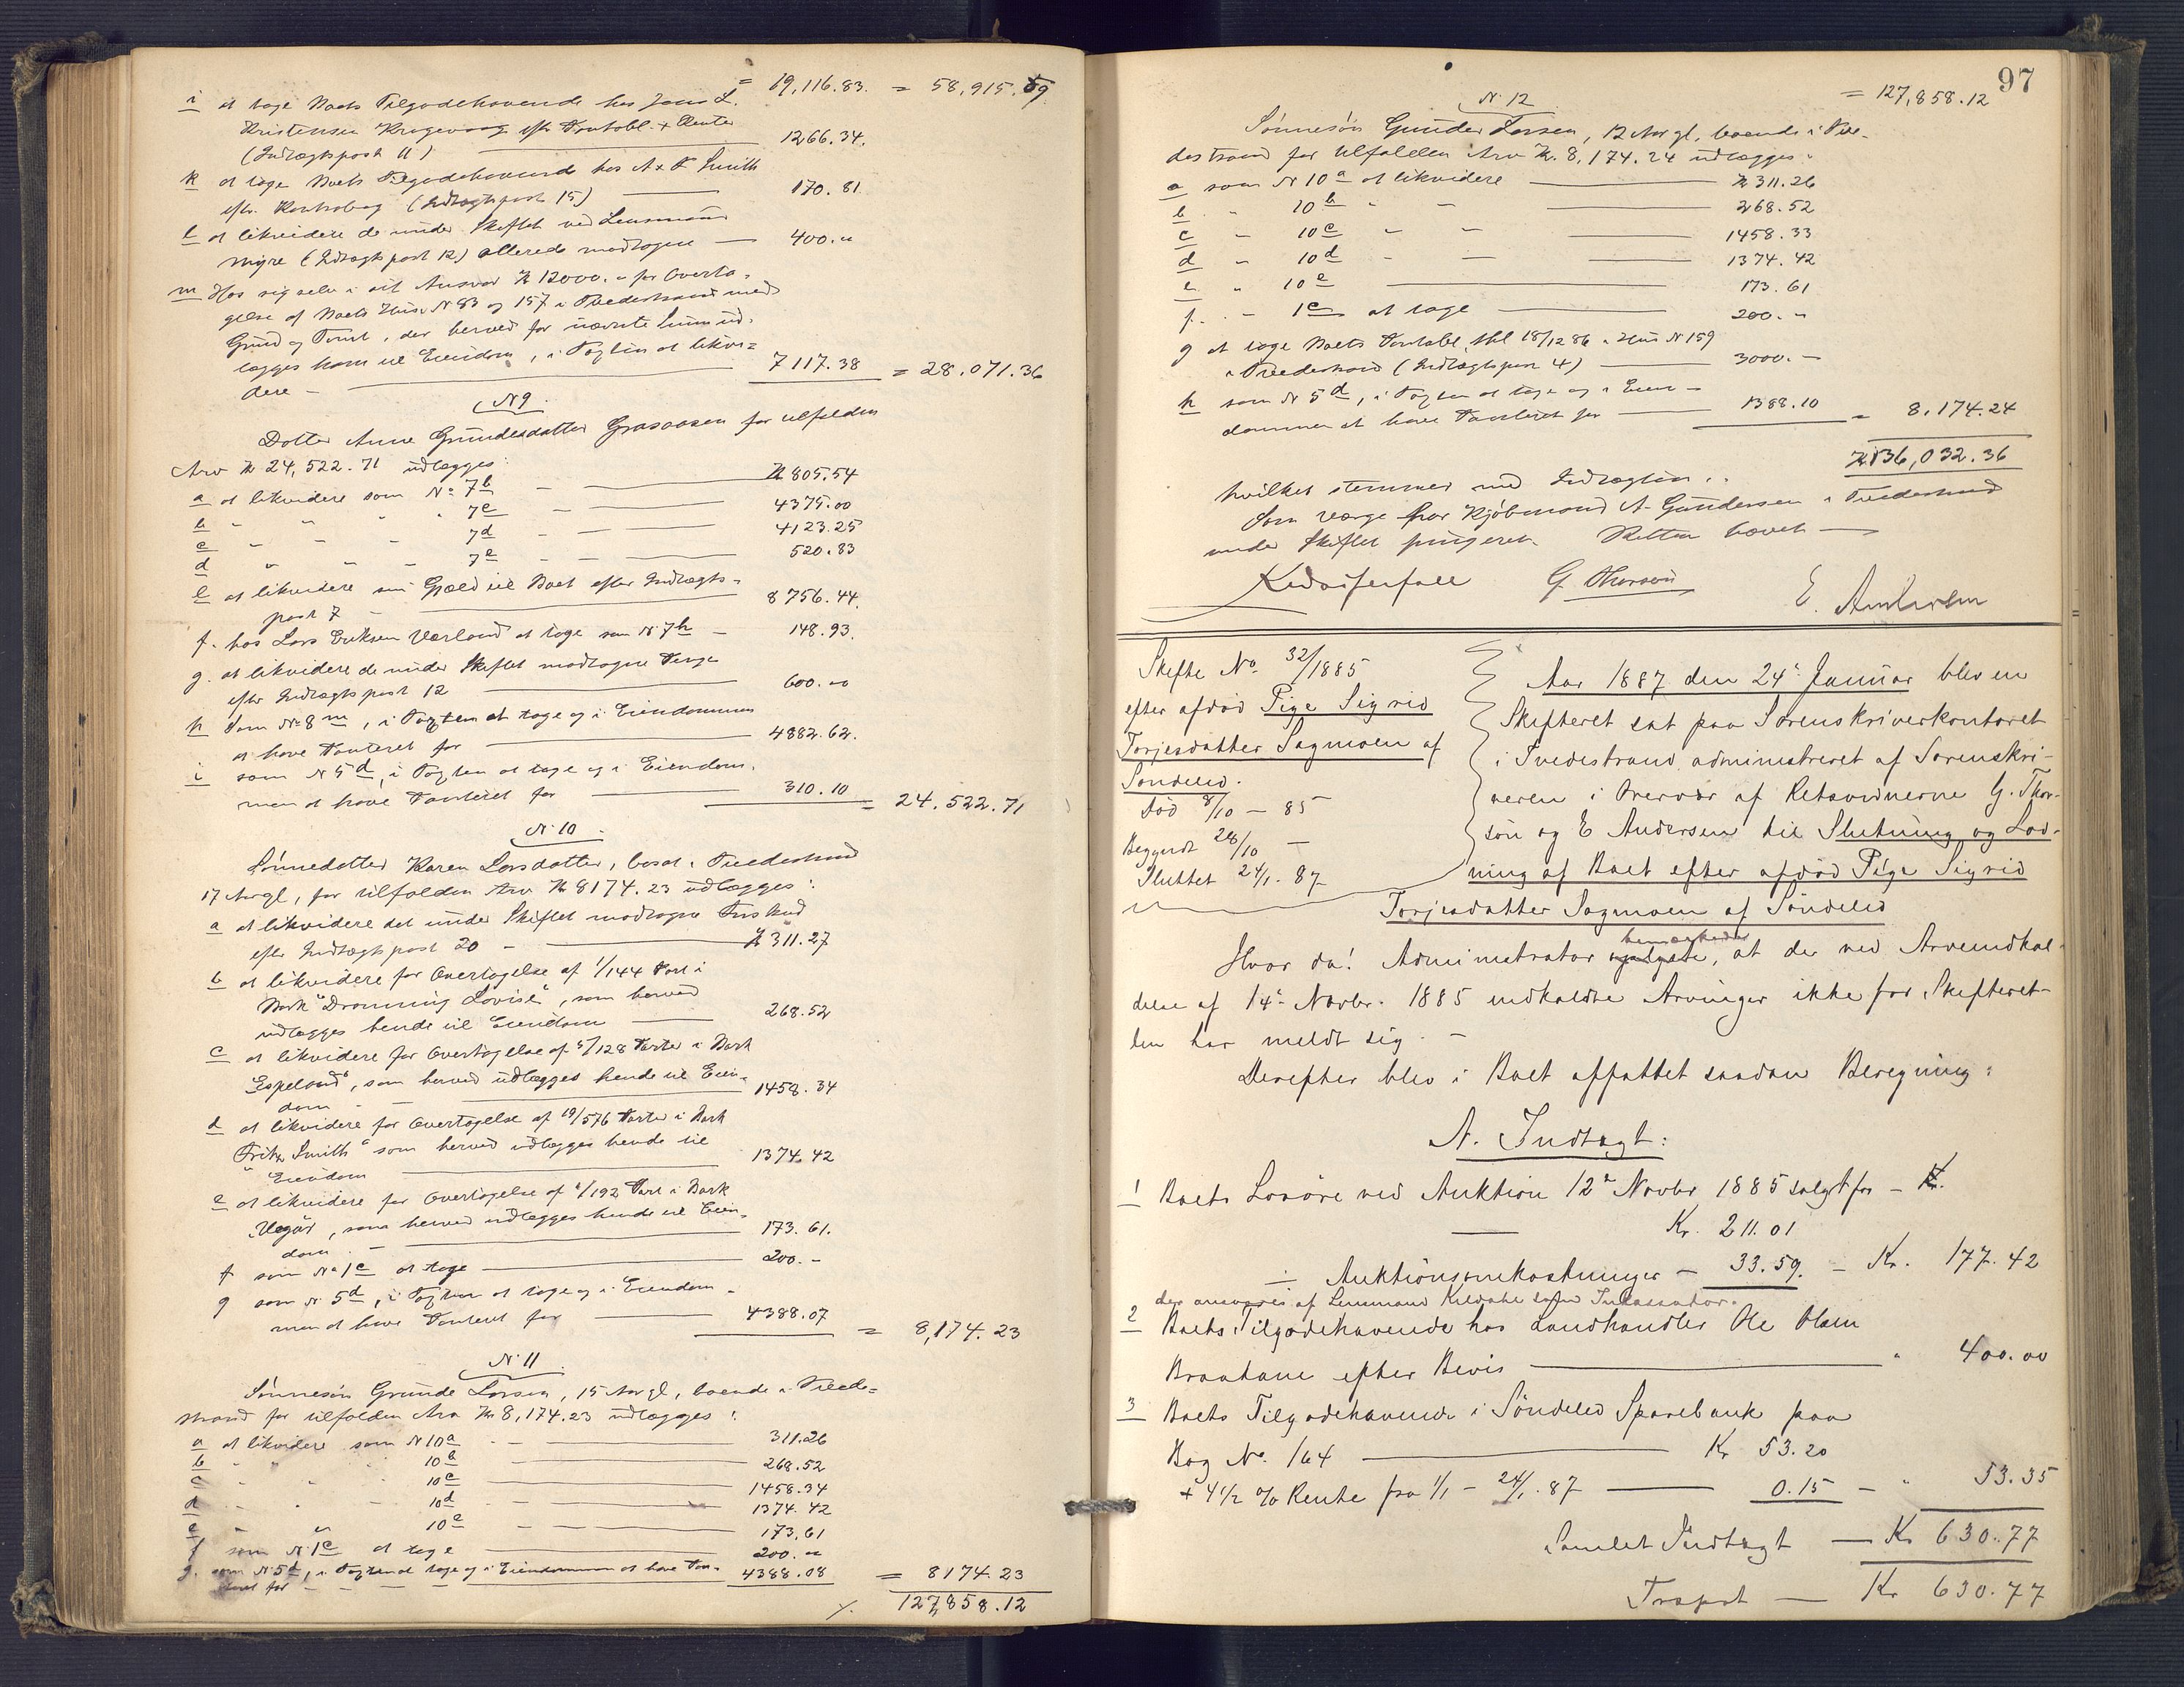 = 19,116.83. = 58,915.59
i at tage Boets Tilgodehavende hos Jens L.
Kristensen Kragevaag efter Pantobl. + Renter
(Indtægtspost 11) 1266.34.
k at tage Boets Tilgodehavende hos A & F Smith
efter Kontrabog (Indtægtspost 15) 170.81
l at likvidere de under Skiftet ved Lensmand
Myre (Indtægtspost 12) allerede modtagne 400.„
m Hos sig selv i sit Ansvar Kr 12000.„ for Overta-
gelse af Boets Huse N 83 og 157 i Tvedestrand med
Grund og Tomt, der herved for nævnte Sum ud-
lægges ham til Eiendom, i Tægten at likvi=
dere 7117.38 = 28.071.36
N 9.
Datter Anne Gundersdatter Grasaasen for tilfalden
Arv Kr 24,522.71 udlægges:
a at likvidere som No 7b Kr 805.54
b „ „ „ 7c 4375.00
c „ - - 7d 4123.25
d „ „ - 7e 520.83
e at likvidere sin Gjæld til Boet efter Indtægts-
post 7 8756.44.
f. hos Lars Eriksen Værland at tage som N 7h 148.93.
g. at likvidere de under Skiftet modtagne Penge
efter Indtægtspost 12 600.„
h Som No 8m, i Tægten at tage og i Eiendommen
at have Panteret for 4882.62.
i som N 5d, i Tægten at tage og i Eiendom-
men at have Panteret for 310.10 = 24.522.71
N 10
Sønnedatter Karen Larsdatter, bosat i Tvedestrand
17 Aar gl, for tilfalden Arv Kr 8174.23 udlægges:
a at likvidere det under Skiftet modtagne Indskud
efter Indtægtspost 20 - Kr 311.27
b at likvidere for Overtagelse af 1/144 Part i
Bark "Dronning Lovise", som herved
udlægges hende til Eiendom 268.52
c at likvidere for Overtagelse af 5/128 Parter i Bark
"Espeland", som herved udlægges hende til Eien-
dom 1458.34
d at likvidere for Overtagelse af 19/576 Parter i Bark
"Fritz Smith" som herved udlægges hende til
Eiendom 1374.42
e at likvidere for Overtagelse af 1/192 Part i Bark
"Vegår", som herved udlægges hende til Eien-
dom 173.61.
f som No 1c at tage 200.-
g som N 5d, i Tægten at tage og i Eiendom-
men at have Panteret for 4388.07 = 8,174.23
N 11
Sønnesøn Grunde Larsen, 15 Aar gl, boende i Tvede=
strand for tilfalden Arv Kr 8,174.23 udlægges:
a at likvidere som N 10a 311.26
b „ „ 10b 268.52
c - - 10c 1458.34
d - - 10d 1374.42
e „ „ 10e 173.61
f som N 1c at tage 200.„
g. som N 5d, i Tægten at tage og i Eiendommen at have Pan-
teret for 4388.08 = 8174.23
127,858.12
97
= 127,858.12
N 12
Sønnesøn Gunder Larsen, 12 Aar gl, boende i Tve-
destrand for tilfalden Arv Kr. 8,174.24 udlægges:
a som N 10a at likvidere Kr 311.26
b. „ 10b „ - 268.52
c - 10c - - 1458.33
d „ 10d - - 1374.42
e „ 10e 173.61
f. - 1c at tage 200.„
g at tage Boets Pantobl. thl 18/12 86 i Hus N 159
i Tvedestrand (Indtægtspost 4) 3000.-
h som N 5d, i Tægten at tage og i Eien-
dommen at have Panteret for 1388.10 = 8,174.24
Kr 136,032.36
hvilket stemmer med Indtægten.
Som Værge har Kjøbmand A. Gundersen i Tvedestrand
under Skiftet fungeret. Retten hævet
G. Thorsøn
E. Andersen
Skifte No. 32/1885
efter afdød Pige Sigrid
Torjesdatter Sagmoen af
Søndeled.
død 8/10 - 85
Begyndt 28/10 -
Sluttet 24/1. 87
Aar 1887 den 24de Januar blev en
Skifteret sat paa Sorenskriverkontoret
i Tvedestrand administreret af Sorenskri-
veren i Overvær af Retsvidnerne G. Thor-
søn og E Andersen til Slutning og Lod-
ning af Boet efter afdød Pige Sigrid
Torjesdatter Sagmoen af Søndeled
Hvor da! Administrator bemærkede, at de ved Arveindkal-
delse af 14de Novbr. 1885 indkaldte Arvinger ikke for Skifteret-
ten har meldt sig. -
Derefter blev i Boet affattet saadan Beregning:
A. Indtægt:
1 Boets Løsøre ved Auktion 12te Novbr 1885 solgt for - Kr.
Kr. 211.01
÷ Auktionsomkostninger - 33.59. - Kr. 177.42
der ansvares af Lensmand Kildahl som Inkassator.
2 Boets Tilgodehavende hos Landhandler Ole Olsen
Braatane efter Bevis „ 400.00
3 Boets Tilgodehavende i Søndeled Sparebank paa
Bog No. 164 Kr 53.20
+ 4 1/2 % Rente fra 1/1 - 24/1. 87 0.15 - „ 53.35
Samlet Indtægt - Kr 630.77
Trsport - Kr 630.77